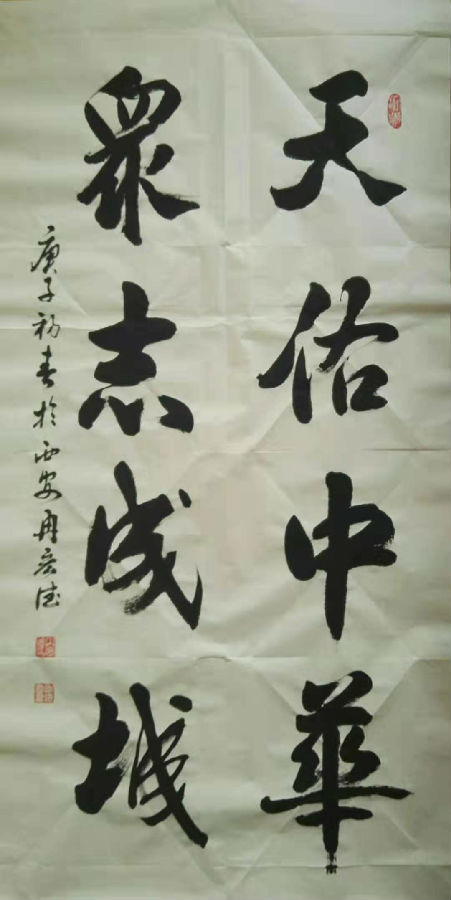 天佑中華
眾志成城
庚子初春於西安冉宏法